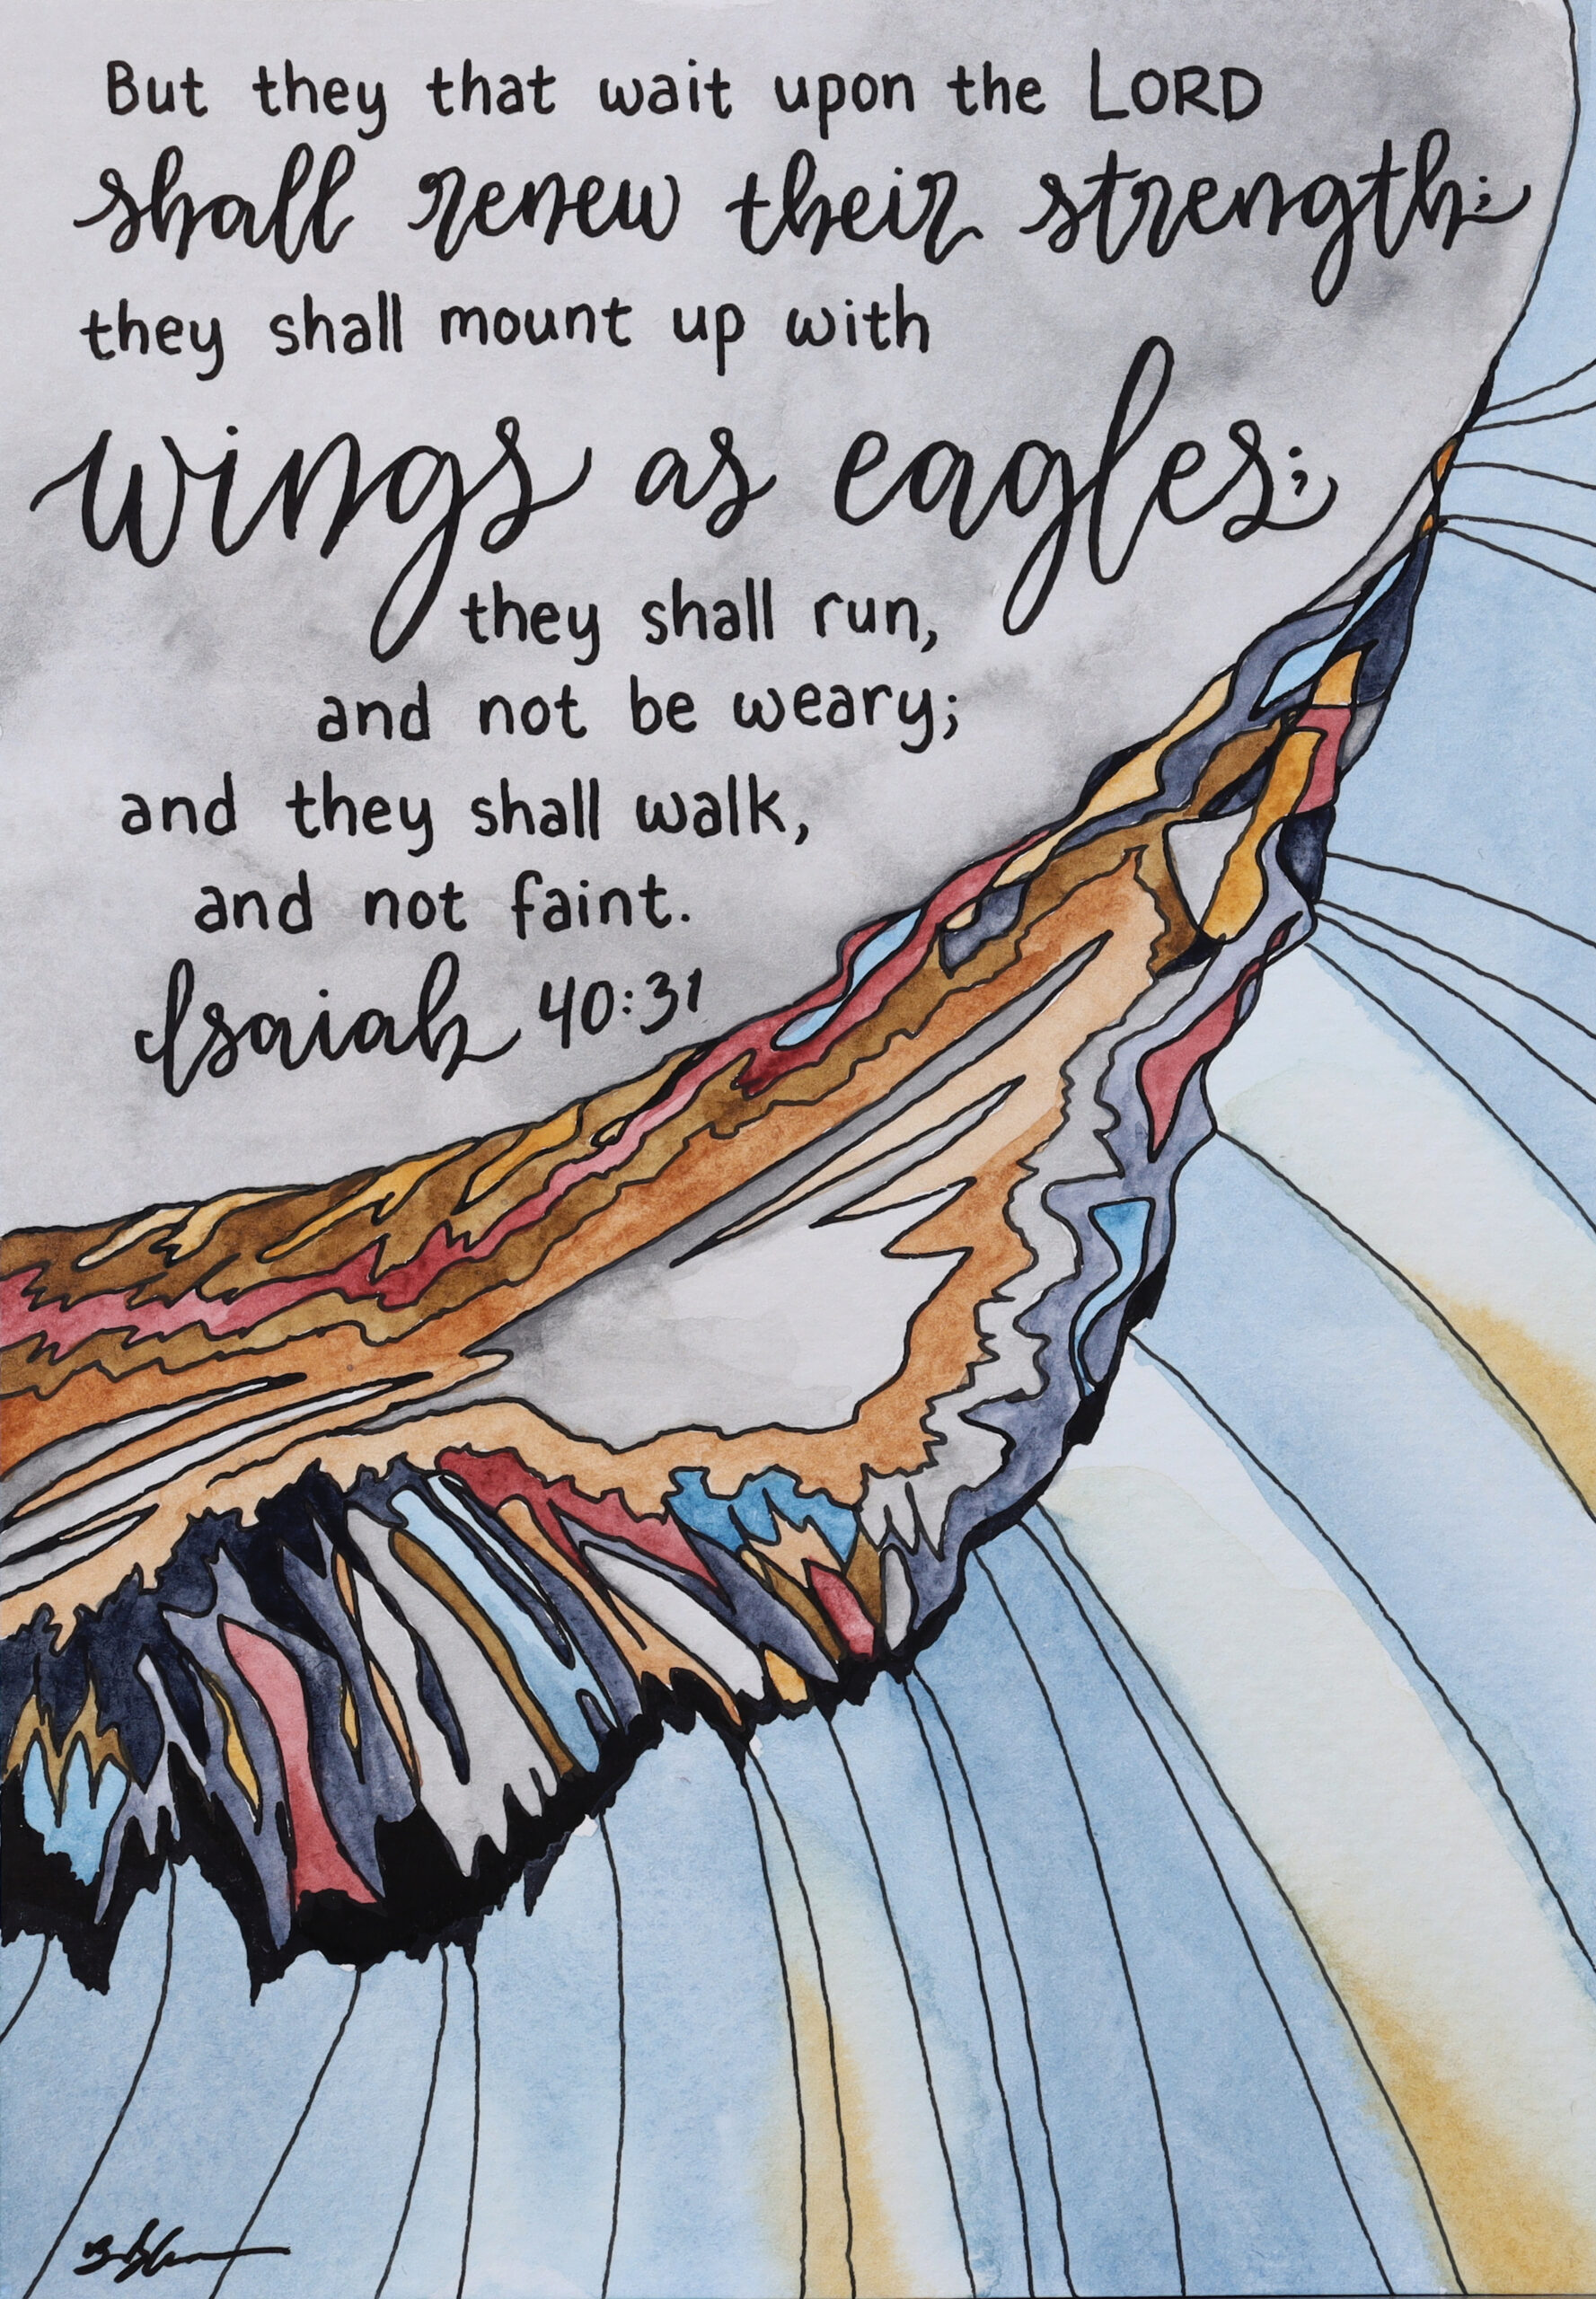 But they that wait upon the LORD
shall renew their strength;
they shall mount up with
wings as eagles;
they shall run,
and not be weary;
and they shall walk,
and not faint.
Isaiah 40:31